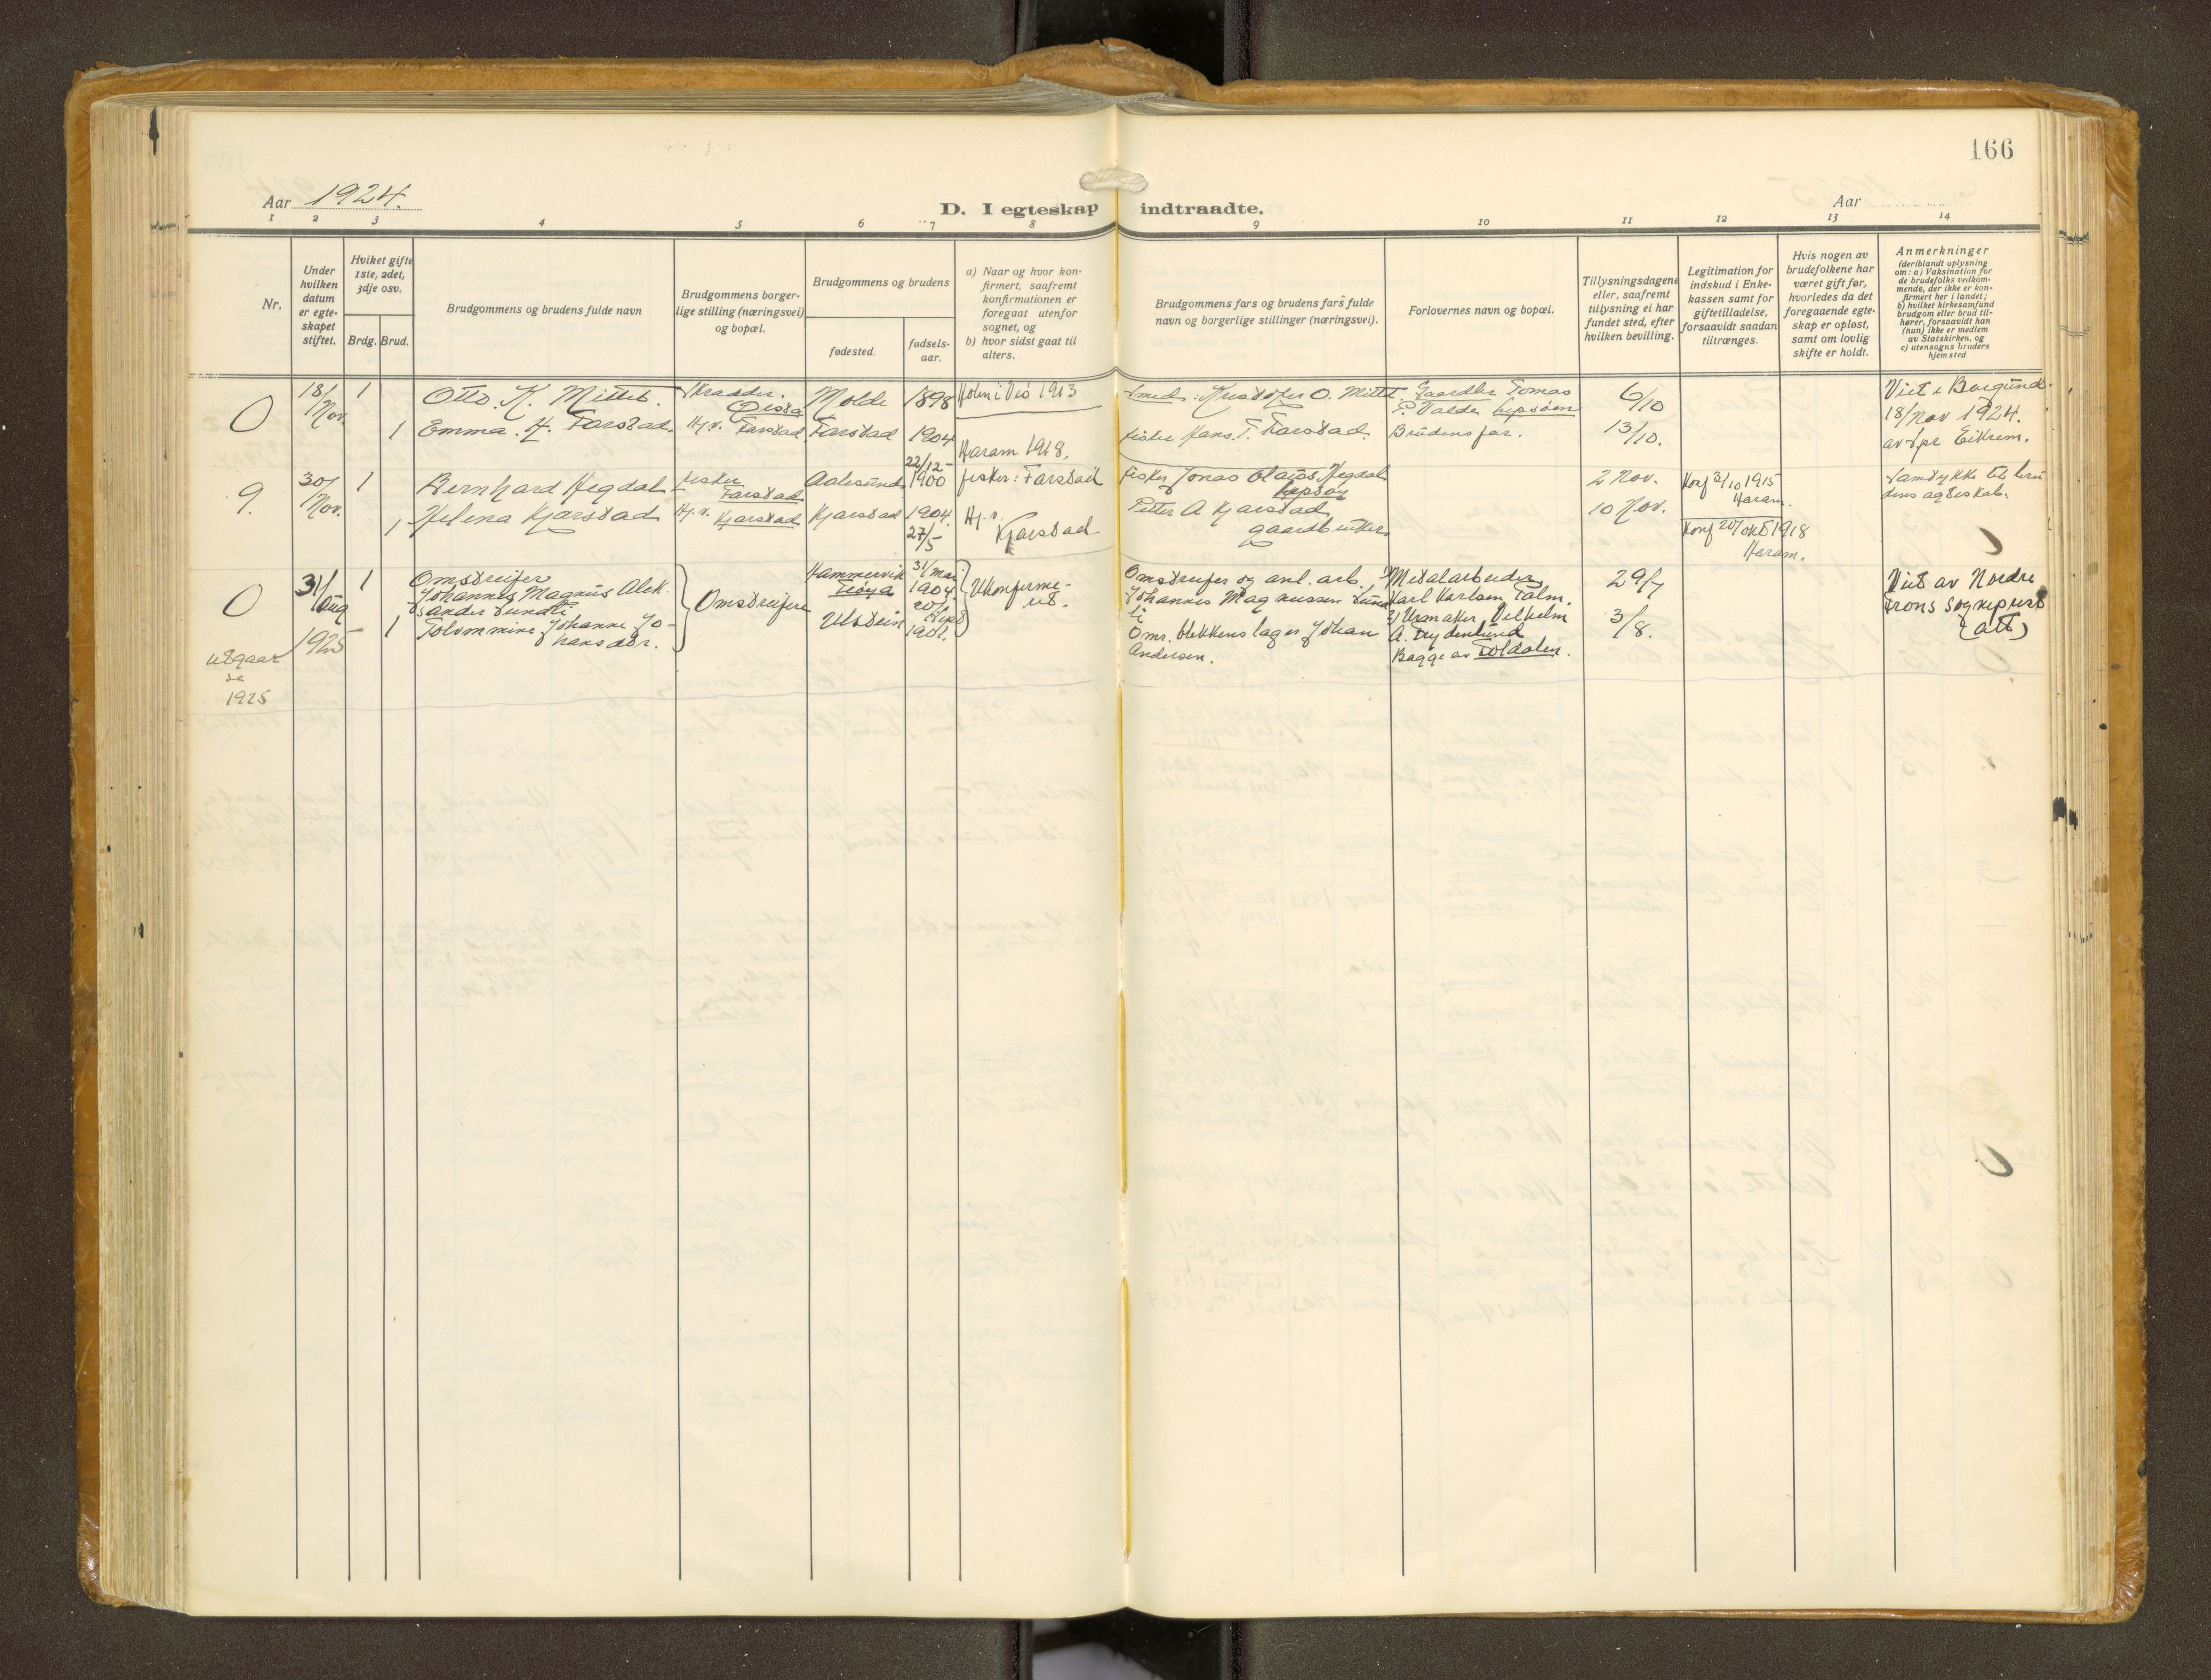 166
Aar 1924.
D. I egteskap indtraadte.
Aar
1 2 3 4 5 6 7 8 9 10 11 12 13 14
Nr.
Under
hvilken
datum
er egte-
skapet
stiftet.
Hviket gifte
1ste, 2det,
3dje osv.
Brdg. Brud.
Brudgommens og brudens fulde navn
Brudgommens borger-
lige stilling (næringsvei)
og bopæl.
Brudgommens og brudens
fødested.
fødsels-
aar.
a) Naar og hvor kon-
firmert, saafremt
konfirmationen er
foregaat utenfor
sognet, og
b) hvor sidst gaat til
alters.
Brudgommens fars og brudens fars fulde
navn og borgerlige stillinger (næringsvei).
Forlovernes navn og bopæl.
Tillysningsdagene
eller, saafremt
tillysning ei har
fundet sted, efter
hvilken bevilling.
Legitimation for
indskud i Enke-
kassen samt for
giftetilladelse,
forsaavidt saadan
tiltrænges.
Hvis nogen av
brudefolkene har
været gift før,
hvorledes da det
foregaaende egte-
skap er opløst,
samt om lovlig
skifte er holdt.
Anmerkninger
(deriblandt oplysning
om: a) Vaksination for
de brudefolks vedkom-
mende, der ikke er kon-
firmert her i landet;
b) hvilket kirkesamfund
brudgom eller brud til-
hører, forsaavidt han
(hun) ikke er medlem
av Statskirken, og
c) utensogns bruders
hjemsted
0
18/
Nov.
1
Otto. K. Mittet.
Skrædder.
Molde
1898
Holm i Veø 1913
Smed: Kristofer O. Mittet.
Gaardbr Tomas
P. Valde Lepsøen
6/10
Viet i Borgund
18/Nov 1924.
av spr Eikrem.
1
Emma. H. Farstad.
Hj.v. Farstad
Farstad
1904
22/12-
Haram 1918.
fisker Hans. T. Farstad.
Brudens far.
13/10.
9.
30/
Nov.
1
Bernhard Hegdal
fisker
Farstad
Aalesund
1900
fisker: Farstad
fisker Jonas Olaus Hegdal
Lepsøy
2 Nov.
Konf 3/10 1915
Haram
Samtykke til bru
dens agteskab.
1
Helena Kjærstad
Hj.v. Kjærstad
Kjærstad
1904.
27/5
Hj.v.
Kjærstad
Petter A Kjærstad
gaardbruker
10 Nov.
Konf 20/okt 1918
Haram.
0
31/
Aug
1925
1
Omstreifer
Johannes Magnus Alek-
sander Sundli
Omstreifere
Hammervik
Frøya
31/mai
1904.
Ukonferme-
ret.
Omstreifer og anl. arb.
Johannes Magnussen Sund
li
1) Metalarbeider
Karl Karlsen Talm.
29/7
Viet av Nordre
Frons sogneprest
(att)
1
Tolommine Johanne Jo-
hansdtr.
Utstein
20/Sept
1901.
Omr. blekkenslager Johan
Andersen.
2) Urmaker Vilhelm
A. Frydenlund
Bagge av Foldalen.
3/8.
utgaar
se
1925